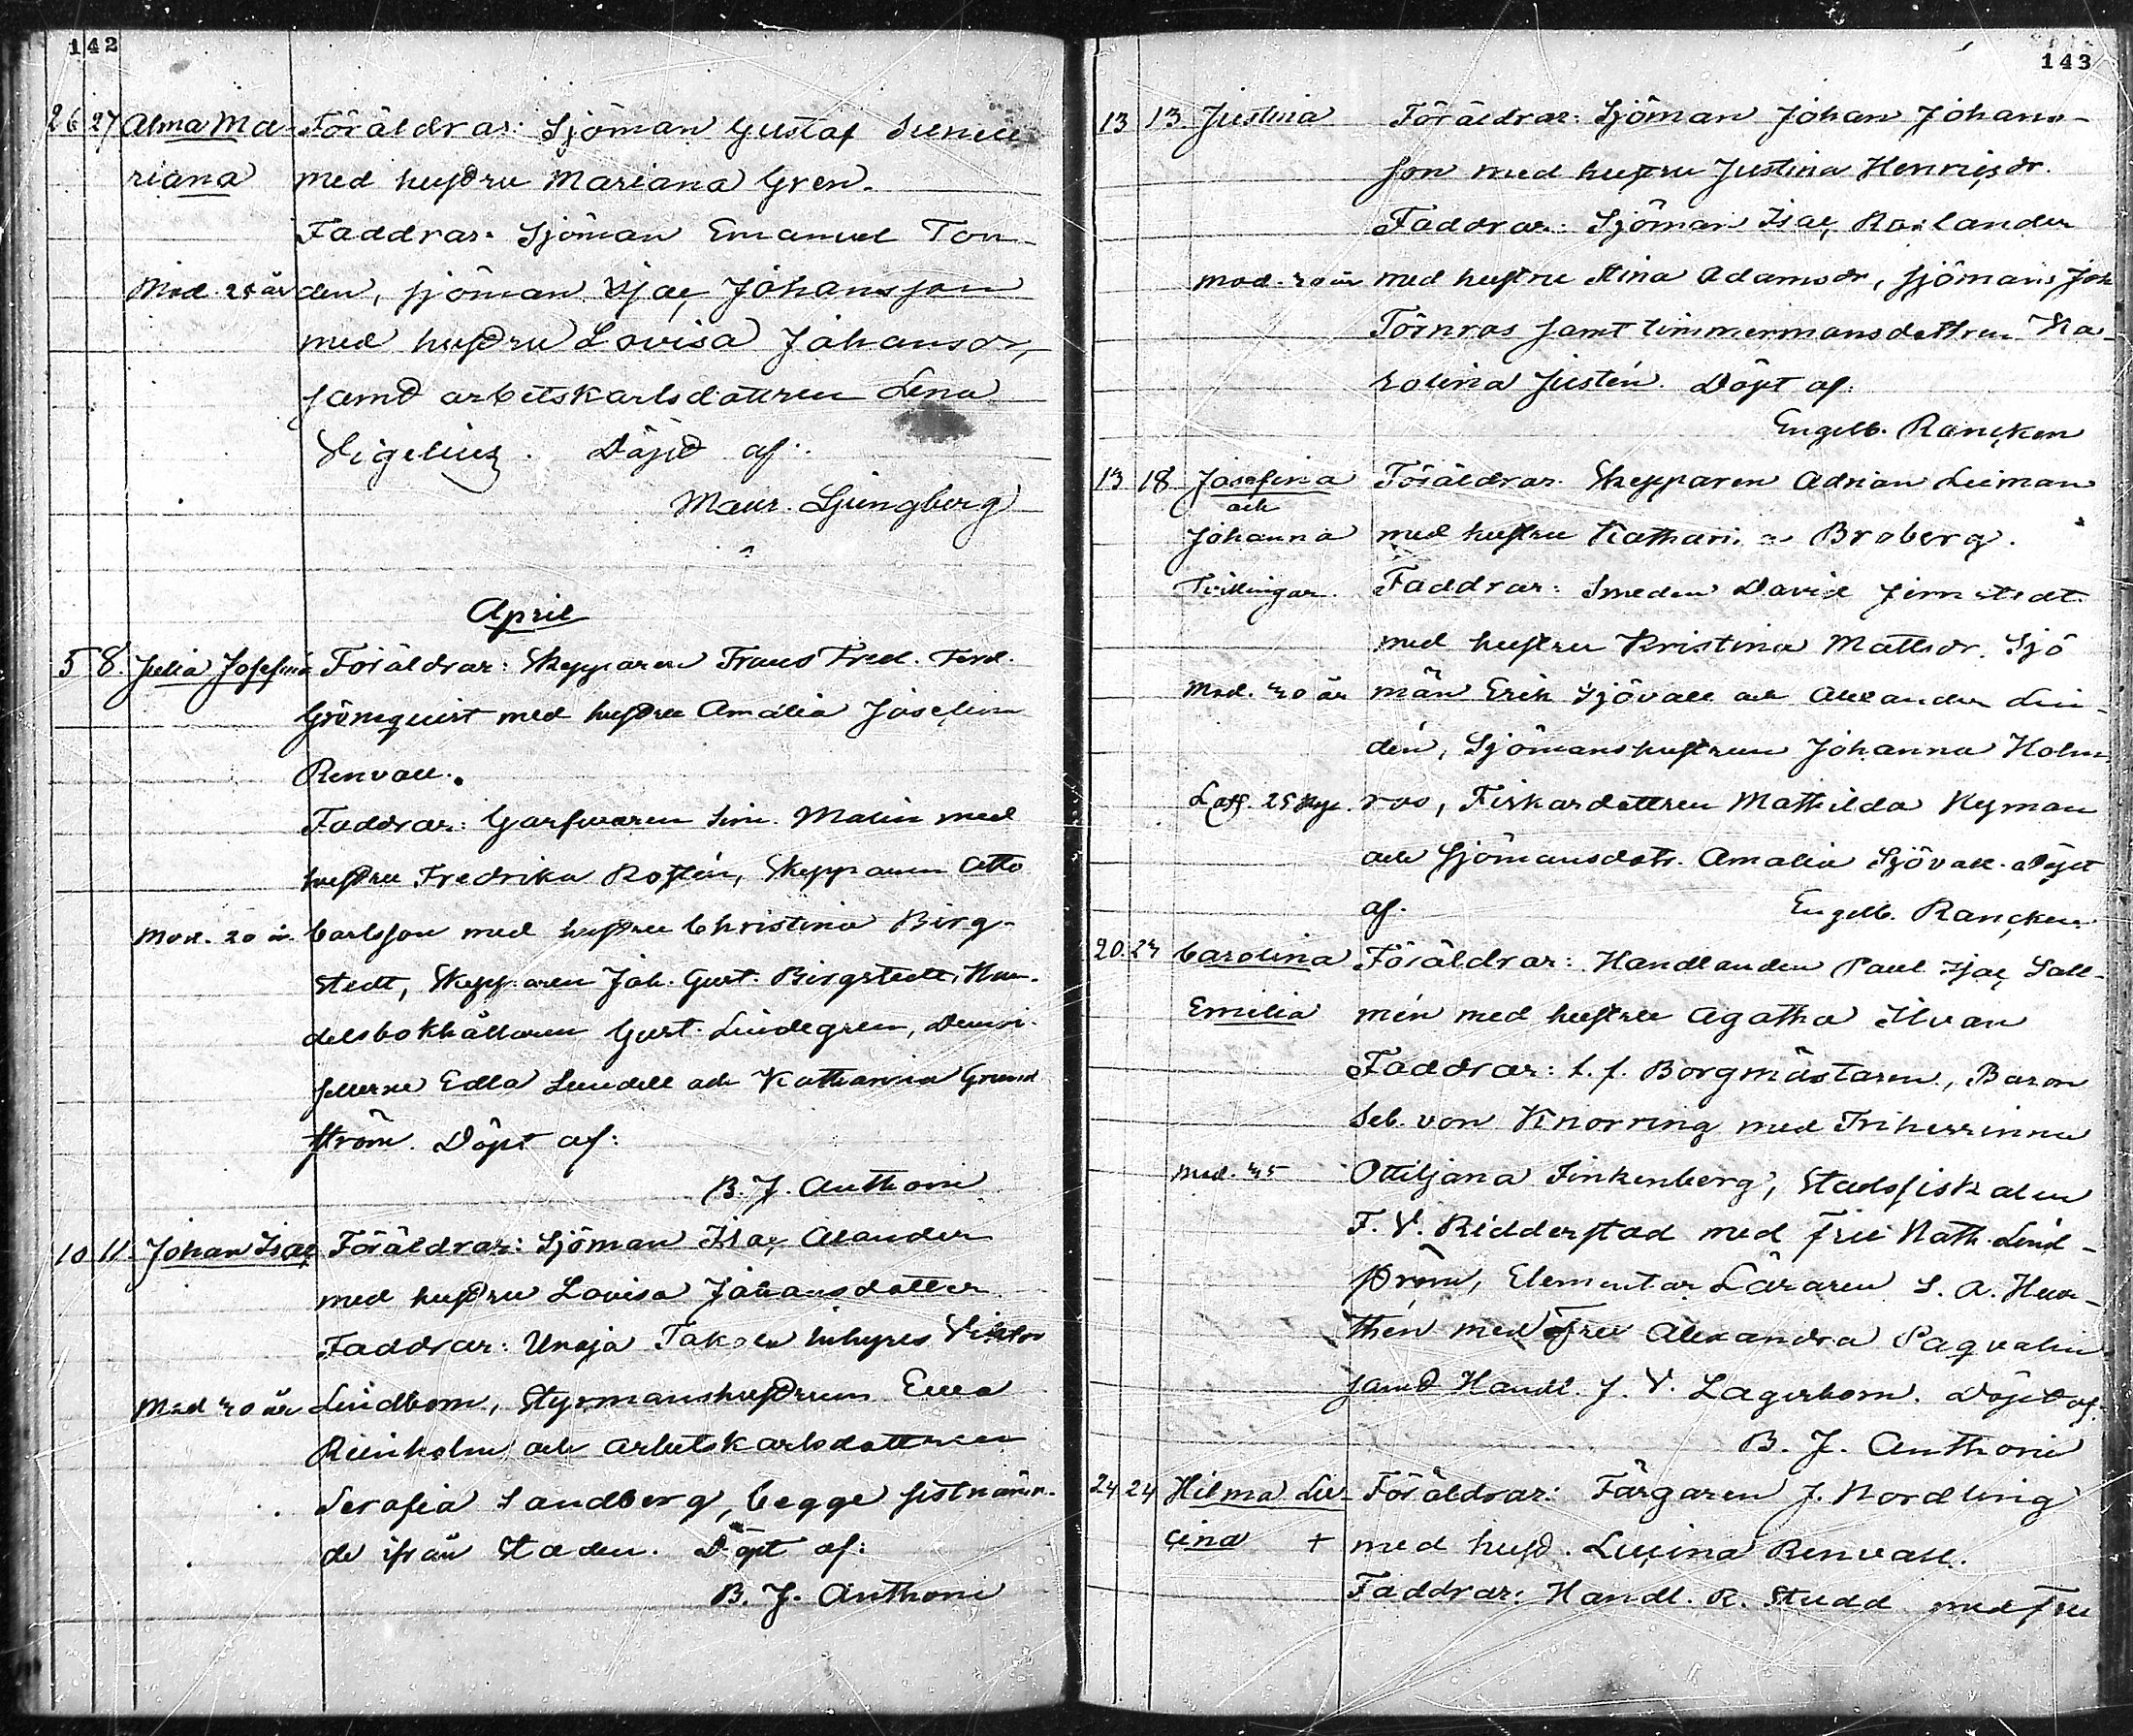 142
26 27 Alma Ma- Föräldrar: Sjöman Gustaf
riana med hustru Mariana Gren.
Faddrar: Sjöman Emanuel Ton-
Mod. 25 år den, sjöman Isac Johansson
med hustru Lovisa Johansdr,
samt arbetskarlsdottren Lena
Sigelius. Döpt af:
Maur. Ljungberg
April
5 8. Julia Josefina Föräldrar: Skepparen Frans Fred. Ferd.
Grönquist med hustru Amalia Josefina
Renvall.
Faddrar: Garfvaren Sim. Malin med
hustru Fredrika Rostén, Skepparen Otto
Mod. 20 år. Carlsson med hustru Christina Birg-
stedt, Skepparen Joh. Gust. Birgstedt, Han-
delsbokhållaren Gust. Lindegren, Demoi-
sellerne Edla Lundell och Katharina Grund
ström. Döpt af:
B. J. Anthoni
10 11. Johan Isac Föräldrar: Sjöman Isac Alander
med hustru Lovisa Johansdotter
Faddrar: Unaja Takola inhyses Viktor
Mod 30 år Lindbom, Styrmanshustrun Eva
Reinholm och arbetskarlsdottren
Serafia Sandberg, begge sistnämn-
de ifrån Staden. Döpt af:
B. J. Anthoni
143
13 13. Justina Föräldrar: Sjöman Johan Johans-
son med hustru Justina Henricsdr.
Faddrar: Sjöman Isac Roslander
Mod. 30 år med hustru Stina Adamsdr, sjöman Joh
Törnros samt timmermansdottren Ka-
rolina Justén. Döpt af:
Engelb. Rancken
13 18 Josefina Föräldrar. Skepparen Adrian Leiman
och
Johanna med hustru Katharina Broberg.
Tvillingar. Faddrar: Smeden David Jernstedt
med hustru Kristina Mattsdr. Sjö
Mod. 30 år män Erik Sjövall och Alexander Lin-
dén, Sjömanshustrun Johanna Holm-
roo, Fiskardottren Mathilda Nyman
och Sjömansdotr. Amalia Sjövall. Döpt
af. Engelb. Rancken.
20. 23 Carolina Föräldrar: Handlanden Paul Isac Sall-
Emilia mén med hustru Agatha Ilvan
Faddrar: t. f. Borgmästaren, Baron
Seb. von Knorring med Friherrinna
Mod. 35 Ottiljana Finkenberg, Stadsfiskalen
F. V. Ridderstad med fru Nath. Lind-
ström, Elementar Läraren S. A.
thén med Fru Alexandra Paqvalin
samt Handl. J. V. Lagerbom. Döpt af.
B. J. Anthoni
24 24 Hilma Lu- Föräldrar: Färgaren J. Nordling
cina + med hust. Lucina Renvall.
Faddrar: Handl. R. Studd med Fru